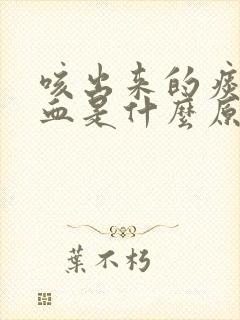 咳出来的痰
血是什麼原
葉不朽